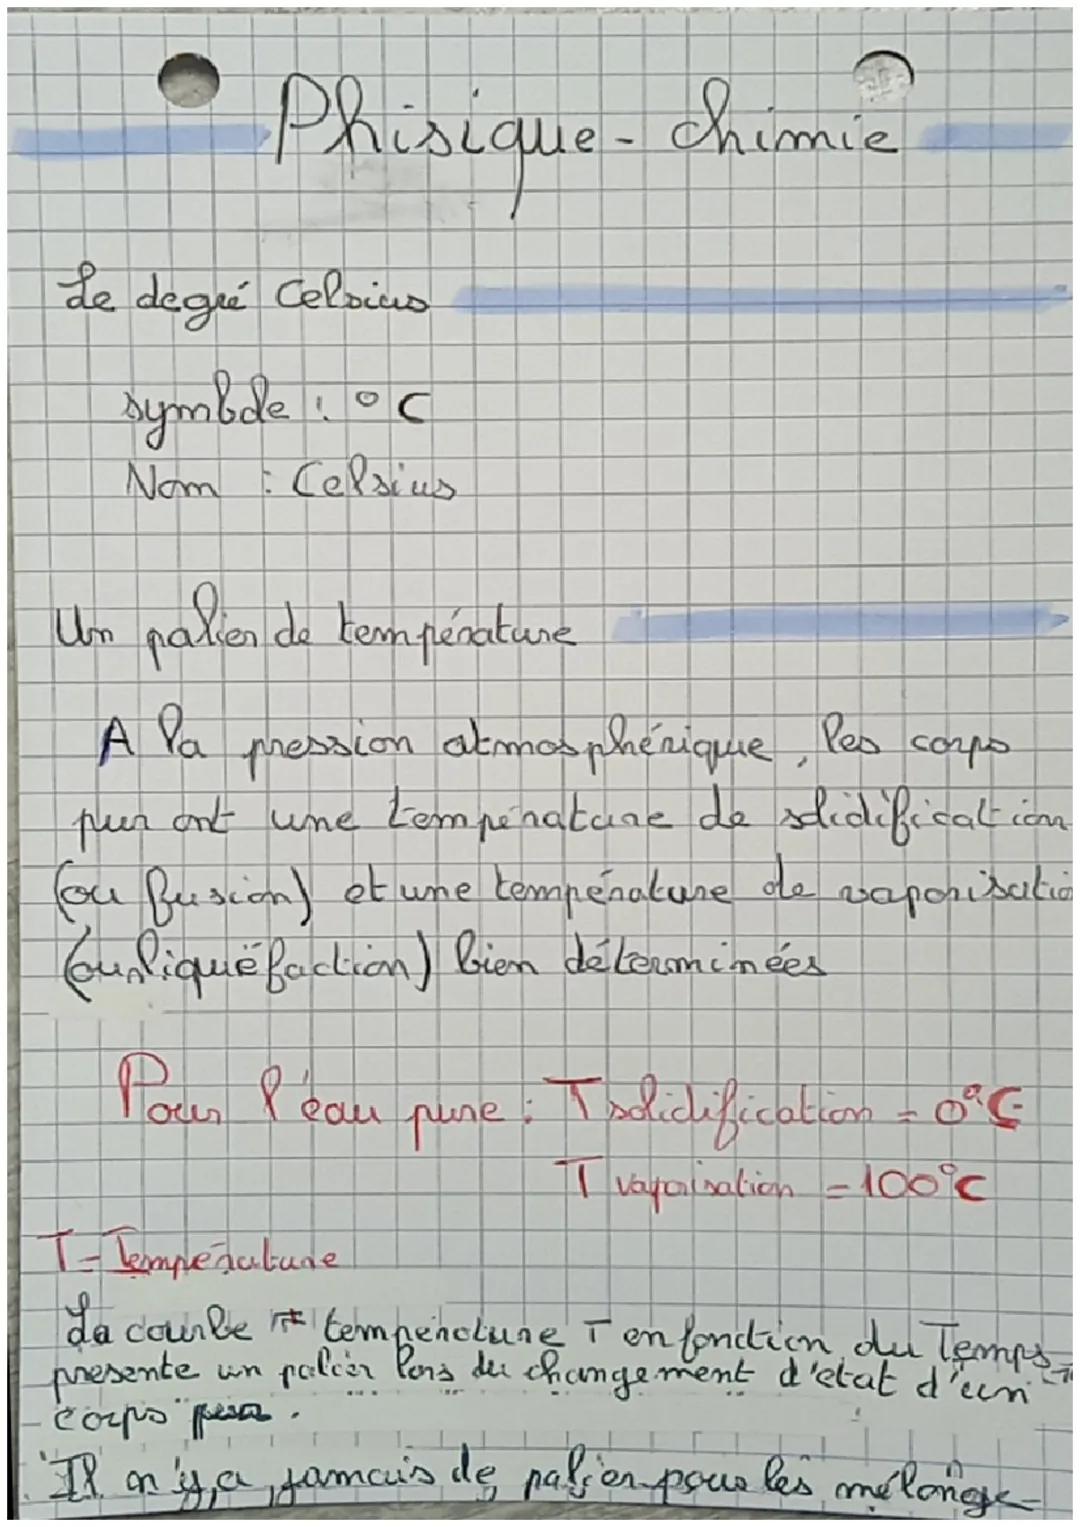 Phisique - chimie
Le degré Celsius
symbole : °C
Nom : Celsius
Un palier de température
A la pression atmosphérique, les corps
pur ont une température de solidification
(ou fusion) et une température de vaporisatio
(ou liquéfaction) bien déterminées
Pour l'éau pure : T solidification = 0°C
T vaporisation = 100°C
T = Température
La courbe température T en fonction du Temps
presente un palier lors du changement d'etat d'un
corps pur.
Il n'y a jamais de palier pour les mélange